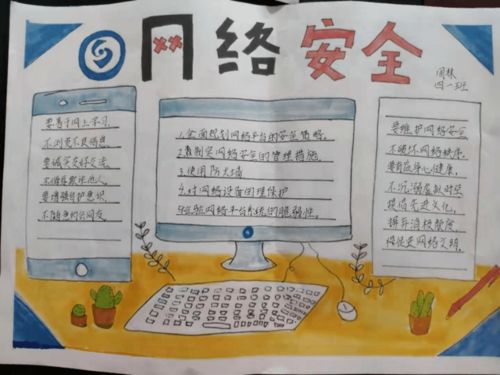 网络安全
周林
四一班
要善于网上学习
不浏览不良信息
要诚实友好交流
不侮辱欺诈他人
要增强自护意识
不随意约会网友
1.全面规划网络平台的安全策略.
2.制定网络安全的管理措施.
3.使用防火墙
4.对网络设备的理保护
网络平台系统的脆弱性.
要维护网络安全
不破坏网络秩序.
要有益身心健康,
不沉溺虚拟时空
提倡先进文化,
摒弃消极颓废
促进网络文明.